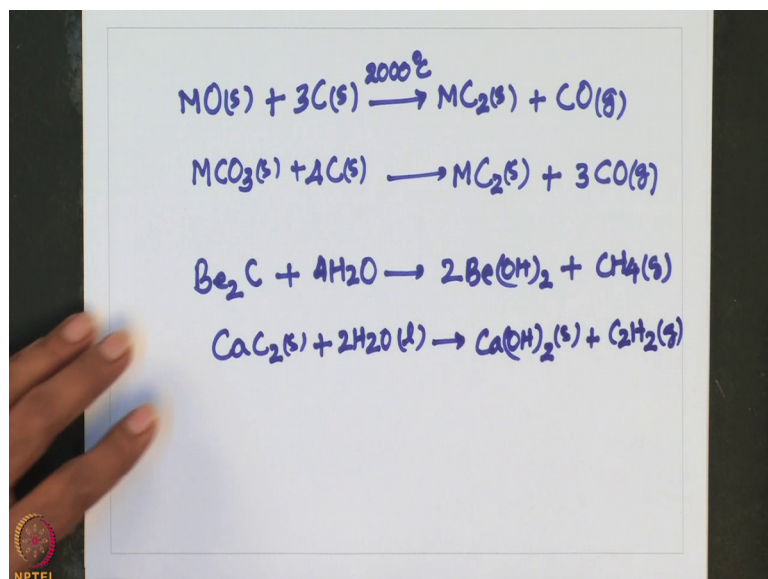 MO(s) + 3C(s) —2000°C→ MC₂(s) + CO(g)
MCO₃(s) + 4C(s) ⟶ MC₂(s) + 3CO(g)
Be₂C + 4H2O ⟶ 2Be(OH)₂ + CH₄(g)
CaC₂(s) + 2H2O(l) ⟶ Ca(OH)₂(s) + C₂H₂(g)
NPTEL